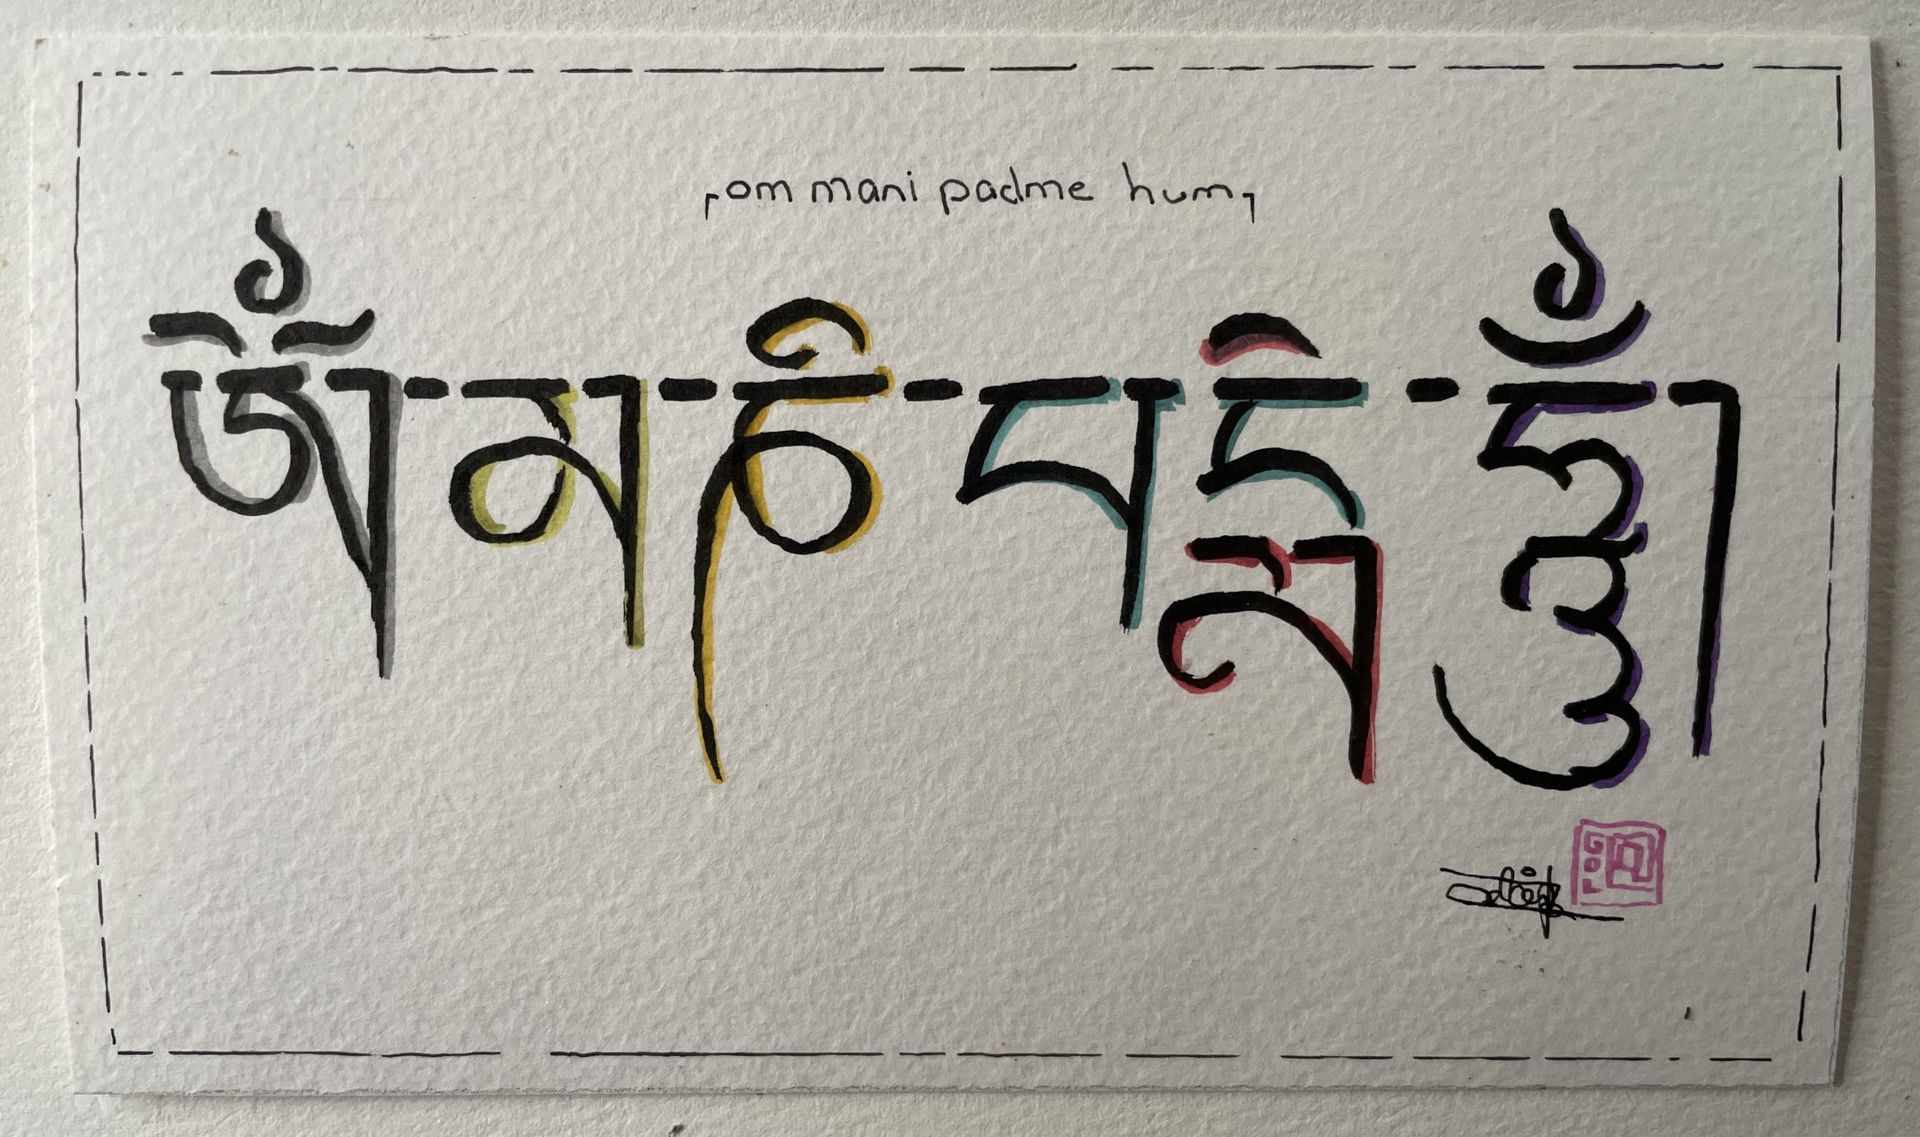 om mani padme hum
ཨོཾ་མ་ཎི་པདྨེ་ཧཱུྃ།